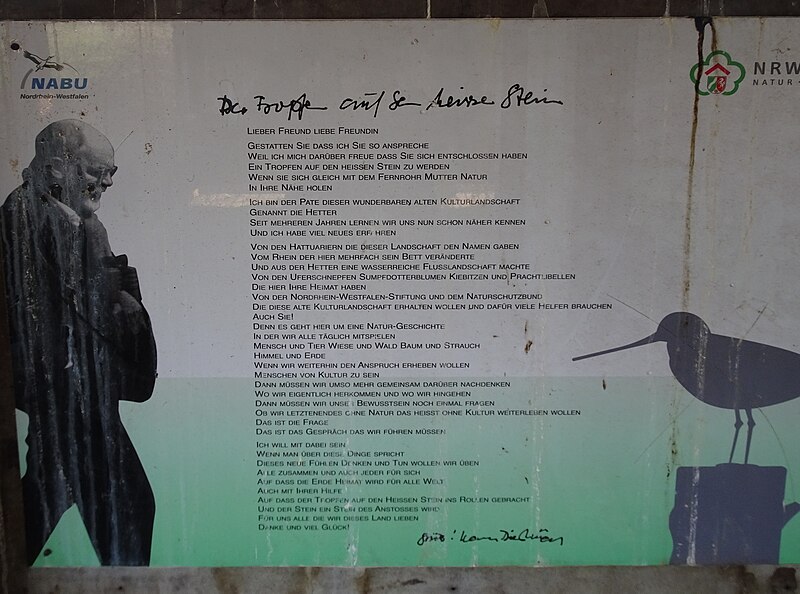 NABU
Nordrhein-Westfalen
NRW
NATUR
Der Tropfen auf den heissen Stein
LIEBER FREUND LIEBE FREUNDIN
GESTATTEN SIE DASS ICH SIE SO ANSPRECHE
WEIL ICH MICH DARÜBER FREUE DASS SIE SICH ENTSCHLOSSEN HABEN
EIN TROPFEN AUF DEN HEISSEN STEIN ZU WERDEN
WENN SIE SICH GLEICH MIT DEM FERNROHR MUTTER NATUR
IN IHRE NÄHE HOLEN
ICH BIN DER PATE DIESER WUNDERBAREN ALTEN KULTURLANDSCHAFT
GENANNT DIE HETTER
SEIT MEHREREN JAHREN LERNEN WIR UNS NUN SCHON NÄHER KENNEN
UND ICH HABE VIEL NEUES ERFAHREN
VON DEN HATTUARIERN DIE DIESER LANDSCHAFT DEN NAMEN GABEN
VOM RHEIN DER HIER MEHRFACH SEIN BETT VERÄNDERTE
UND AUS DER HETTER EINE WASSERREICHE FLUSSLANDSCHAFT MACHTE
VON DEN UFERSCHNEPFEN SUMPFDOTTERBLUMEN KIEBITZEN UND PRACHTLIBELLEN
DIE HIER IHRE HEIMAT HABEN
VON DER NORDRHEIN-WESTFALEN-STIFTUNG UND DEM NATURSCHUTZBUND
DIE DIESE ALTE KULTURLANDSCHAFT ERHALTEN WOLLEN UND DAFÜR VIELE HELFER BRAUCHEN
AUCH SIE!
DENN ES GEHT HIER UM EINE NATUR-GESCHICHTE
IN DER WIR ALLE TÄGLICH MITSPIELEN
MENSCH UND TIER WIESE UND WALD BAUM UND STRAUCH
HIMMEL UND ERDE
WENN WIR WEITERHIN DEN ANSPRUCH ERHEBEN WOLLEN
MENSCHEN VON KULTUR ZU SEIN
DANN MÜSSEN WIR UMSO MEHR GEMEINSAM DARÜBER NACHDENKEN
WO WIR EIGENTLICH HERKOMMEN UND WO WIR HINGEHEN
DANN MÜSSEN WIR UNSER BEWUSSTSEIN NOCH EINMAL FRAGEN
OB WIR LETZTENENDES OHNE NATUR DAS HEISST OHNE KULTUR WEITERLEBEN WOLLEN
DAS IST DIE FRAGE
DAS IST DAS GESPRÄCH DAS WIR FÜHREN MÜSSEN
ICH WILL MIT DABEI SEIN
WENN MAN ÜBER DIESE DINGE SPRICHT
DIESES NEUE FÜHLEN DENKEN UND TUN WOLLEN WIR ÜBEN
ALLE ZUSAMMEN UND AUCH JEDER FÜR SICH
AUF DASS DIE ERDE HEIMAT WIRD FÜR ALLE WELT
AUCH MIT IHRER HILFE
AUF DASS DER TROPFEN AUF DEN HEISSEN STEIN INS ROLLEN GEBRACHT
UND DER STEIN EIN STEIN DES ANSTOSSES WIRD
FÜR UNS ALLE DIE WIR DIESES LAND LIEBEN
DANKE UND VIEL GLÜCK!